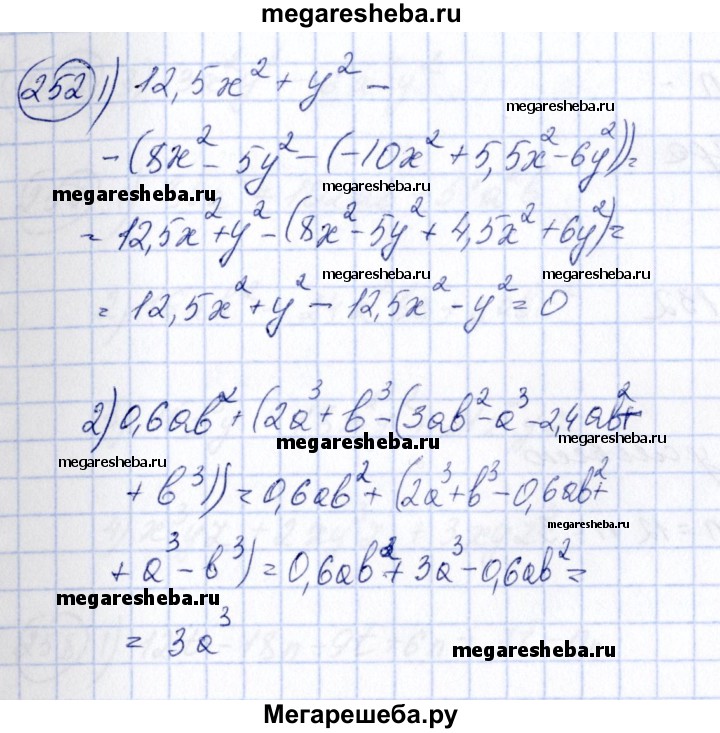 megaresheba.ru
252 1) 12,5x² + y² –
megaresheba.ru
– (8x² – 5y² – (–10x² + 5,5x² – 6y²)) =
megaresheba.ru megaresheba.ru
= 12,5x² + y² – (8x² – 5y² + 4,5x² + 6y²) =
megaresheba.ru megaresheba.ru
= 12,5x² + y² – 12,5x² – y² = 0
megaresheba.ru
2) 0,6ab² + (2a³ + b³ – (3ab² – a³ – 2,4ab² +
megaresheba.ru megaresheba.ru megaresheba.ru
+ b³)) = 0,6ab² + (2a³ + b³ – 0,6ab² +
megaresheba.ru
+ a³ – b³) = 0,6ab² + 3a³ – 0,6ab² =
megaresheba.ru
= 3a³
megaresheba.ru
Мегарешеба.ру